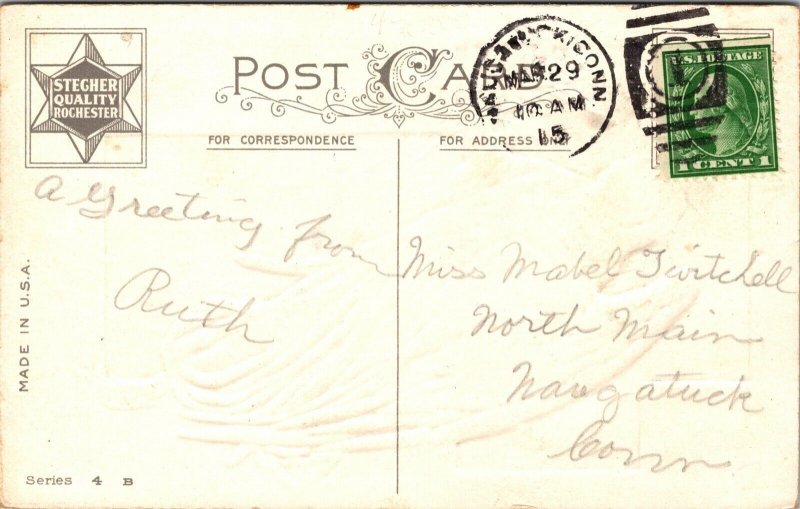 STEGHER
QUALITY
ROCHESTER
POST CARD
FOR CORRESPONDENCE
FOR ADDRESS ONLY
CONN
MAR 29
10 AM
15
U.S. POSTAGE
1 CENT 1
A Greeting from
Ruth
Miss Mabel Twitchell
North Main
Naugatuck
Conn
MADE IN U.S.A.
Series 4 B